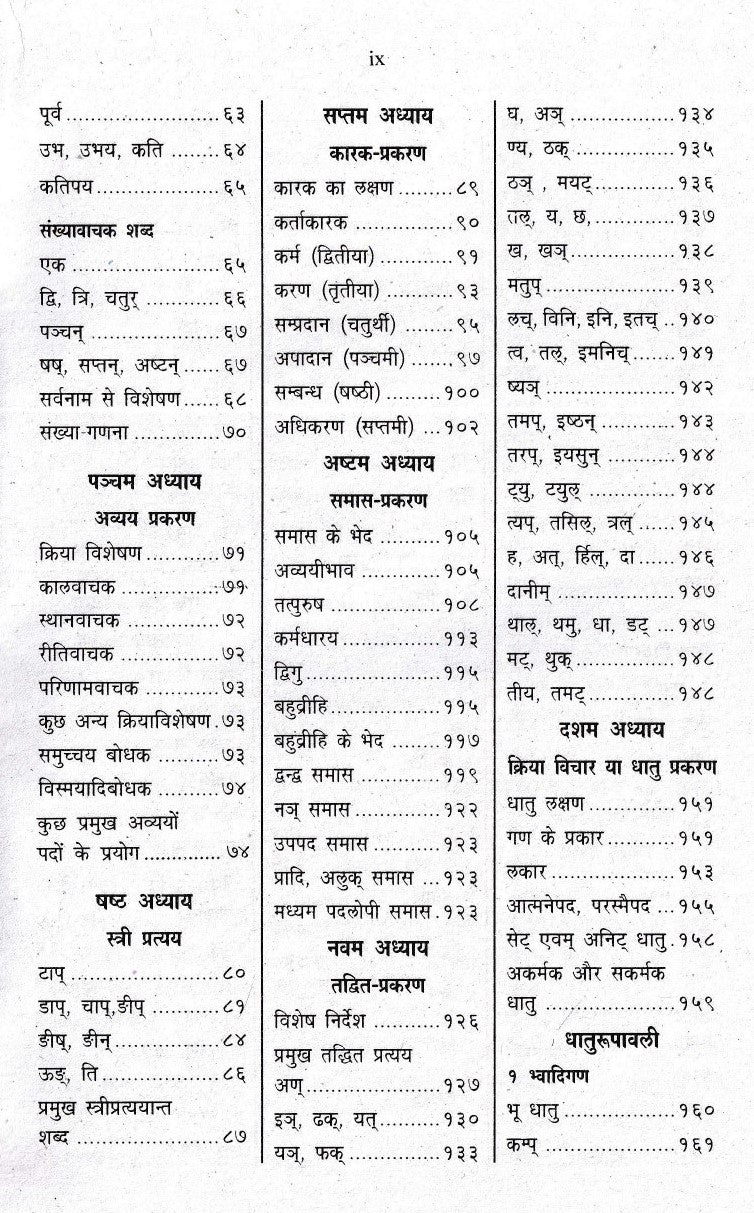 ix
पूर्व ..........................६३
उभ, उभय, कति ........६४
कतिपय.....................६५
संख्यावाचक शब्द
एक .........................६५
द्वि, त्रि, चतुर् .............६६
पञ्चन् ......................६७
षष्, सप्तन्, अष्टन् ......६७
सर्वनाम से विशेषण......६८
संख्या-गणना ..............७०
पञ्चम अध्याय
अव्यय प्रकरण
क्रिया विशेषण ............७१
कालवाचक ................७१
स्थानवाचक ...............७२
रीतिवाचक ................७२
परिणामवाचक ............७३
कुछ अन्य क्रियाविशेषण .७३
समुच्चय बोधक ...........७३
विस्मयादिबोधक ..........७४
कुछ प्रमुख अव्ययों
पदों के प्रयोग .............. ७४
षष्ठ अध्याय
स्त्री प्रत्यय
टाप् .........................८०
डाप्, चाप्,ङीप् ...........८१
ङीष्, ङीन् .................८४
ऊङ्, ति ....................८६
प्रमुख स्त्रीप्रत्ययान्त
शब्द ........................८७
सप्तम अध्याय
कारक-प्रकरण
कारक का लक्षण .........८९
कर्ताकारक .................९०
कर्म (द्वितीया) .............९१
करण (तृतीया) ............९३
सम्प्रदान (चतुर्थी) .........९५
अपादान (पञ्चमी) ........९७
सम्बन्ध (षष्ठी) ..........१००
अधिकरण (सप्तमी) ...१०२
अष्टम अध्याय
समास-प्रकरण
समास के भेद ...........१०५
अव्ययीभाव ..............१०५
तत्पुरुष ...................१०८
कर्मधारय .................११३
द्विगु .......................११५
बहुव्रीहि....................११५
बहुव्रीहि के भेद .........११७
द्वन्द्व समास ..............११९
नञ् समास ...............१२२
उपपद समास ............१२३
प्रादि, अलुक् समास ...१२३
मध्यम पदलोपी समास.१२३
नवम अध्याय
तद्वित-प्रकरण
विशेष निर्देश ............१२६
प्रमुख तद्धित प्रत्यय
अण्........................१२७
इञ्, ढक्, यत्............१३०
यञ्, फक् .................१३३
घ, अञ् ...................१३४
ण्य, ठक् ..................१३५
ठञ् , मयट्...............१३६
तल्, य, छ,..............१३७
ख, खञ्...................१३८
मतुप् ......................१३९
लच्, विनि, इनि, इतच् ..१४०
त्व, तल्, इमनिच्........१४१
ष्यञ् ......................१४२
तमप्, इष्ठन् .............१४३
तरप्, इयसुन् ............१४४
ट्यु, टयुल् ................१४४
त्यप्, तसिल्, त्रल् ......१४५
ह, अत्, र्हिल्, दा ......१४६
दानीम् ....................१४७
थाल्, थमु, धा, डट् ...१४७
मट्, थुक् .................१४८
तीय, तमट्...............१४८
दशम अध्याय
क्रिया विचार या धातु प्रकरण
धातु लक्षण ..............१५१
गण के प्रकार ............१५१
लकार .....................१५३
आत्मनेपद, परस्मैपद ...१५५
सेट् एवम् अनिट् धातु .१५८
अकर्मक और सकर्मक
धातु .......................१५९
धातुरूपावली
१ भ्वादिगण
भू धातु ....................१६०
कम्प् .......................१६१